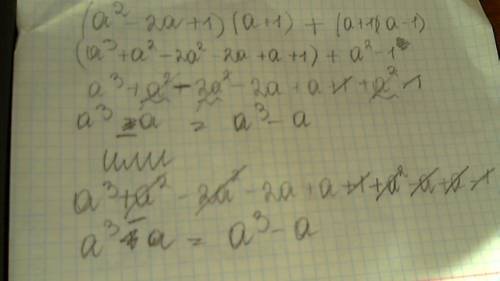 (a² - 2a + 1)(a+1) + (a+1)(a-1)
(a³ + a² - 2a² - 2a + a + 1) + a² - 1
a³ + a² - 2a² - 2a + a + 1 + a² - 1
a³ - a = a³ - a
или
a³ + a² - 2a² - 2a + a + 1 + a² - a + a - 1
a³ - a = a³ - a